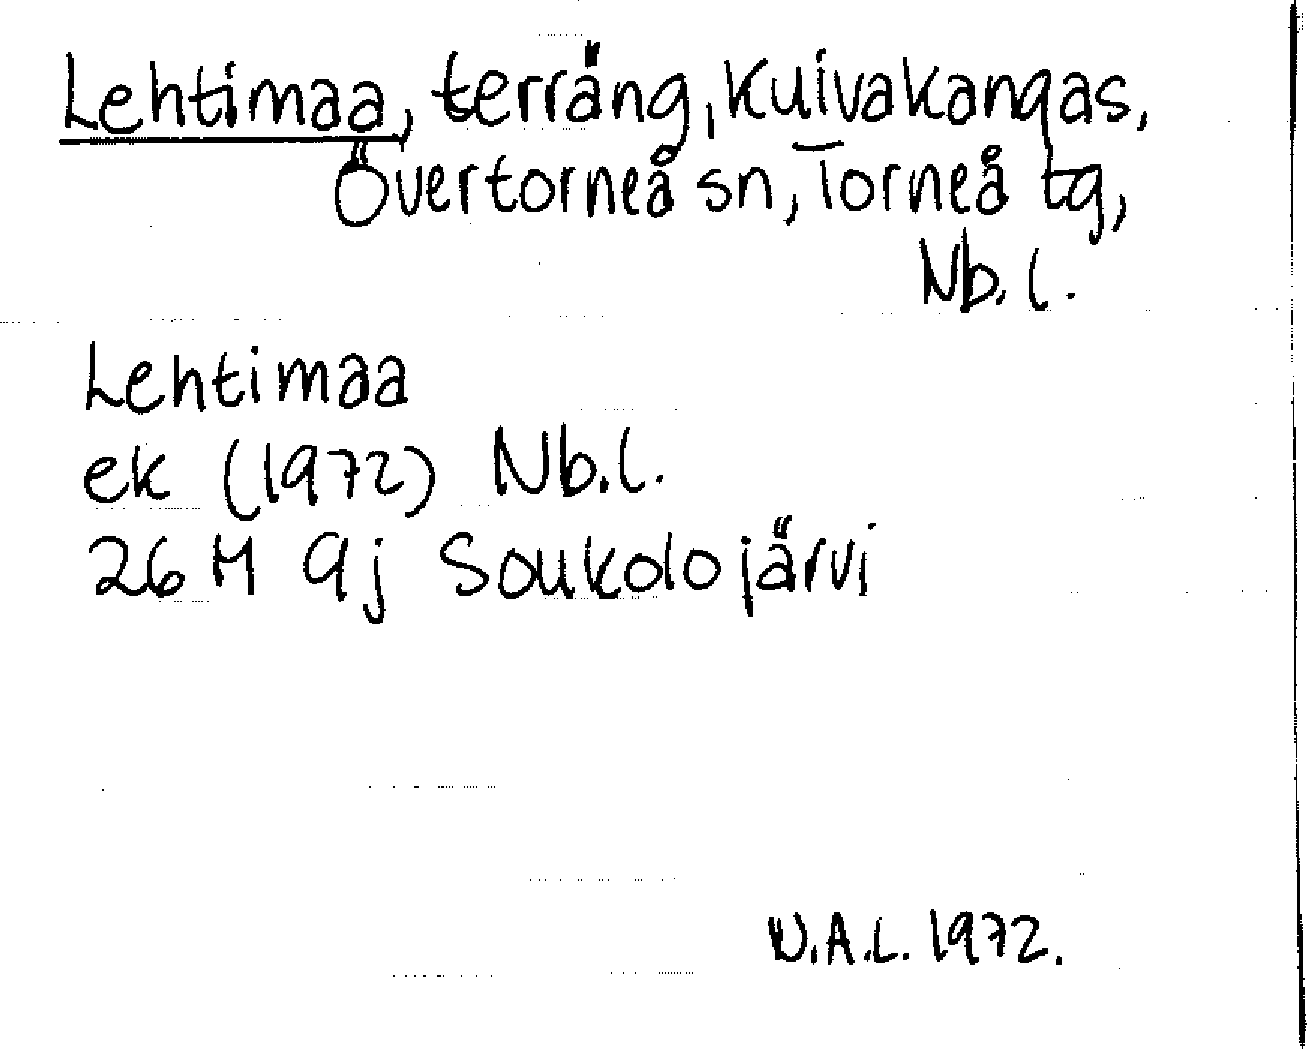 Lehtimaa, terräng, Kuivakangas,
Övertorneå sn, Torneå tg,
Nb. l.
Lehtimaa
ek (1972) Nb.l.
26 M 9j Soukolojärvi
W.A.L. 1972.